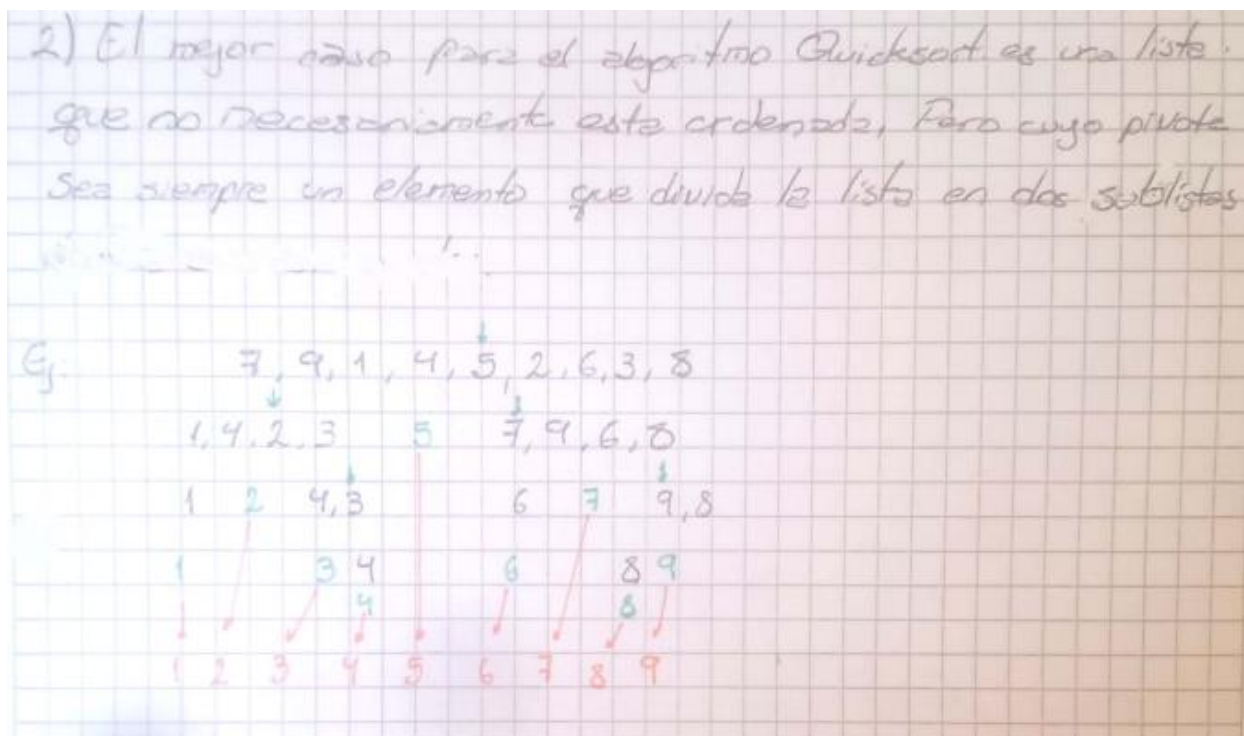 2) El mejor caso para el algoritmo Quicksort es una lista
que no necesariamente este ordenada, Pero cuyo pivote
Sea siempre un elemento que divida la lista en dos sublistas
Ej. 7, 9, 1, 4, 5, 2, 6, 3, 8
1, 4, 2, 3 5 7, 9, 6, 8
1 2 4, 3 6 7 9, 8
1 3 4 6 8 9
4 8
1 2 3 4 5 6 7 8 9